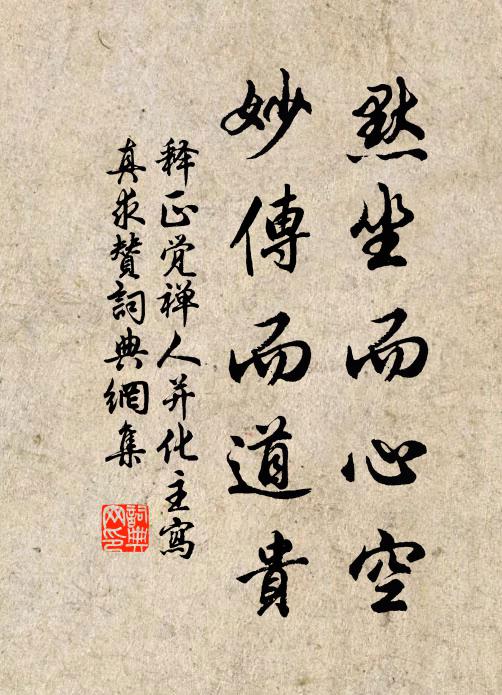 默坐而心空
妙傳而道貴
释正觉禅人并化主寫
真求贊詞典網集
詞典网印